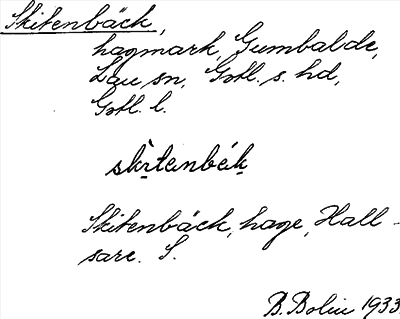 Skitenbäck,
hagmark, Gumbalde,
Lau sn, Gotl. s. hd,
Gotl. l.
Skitenbäck, hage, Hall-
sare. S.
B. Bolin 1933